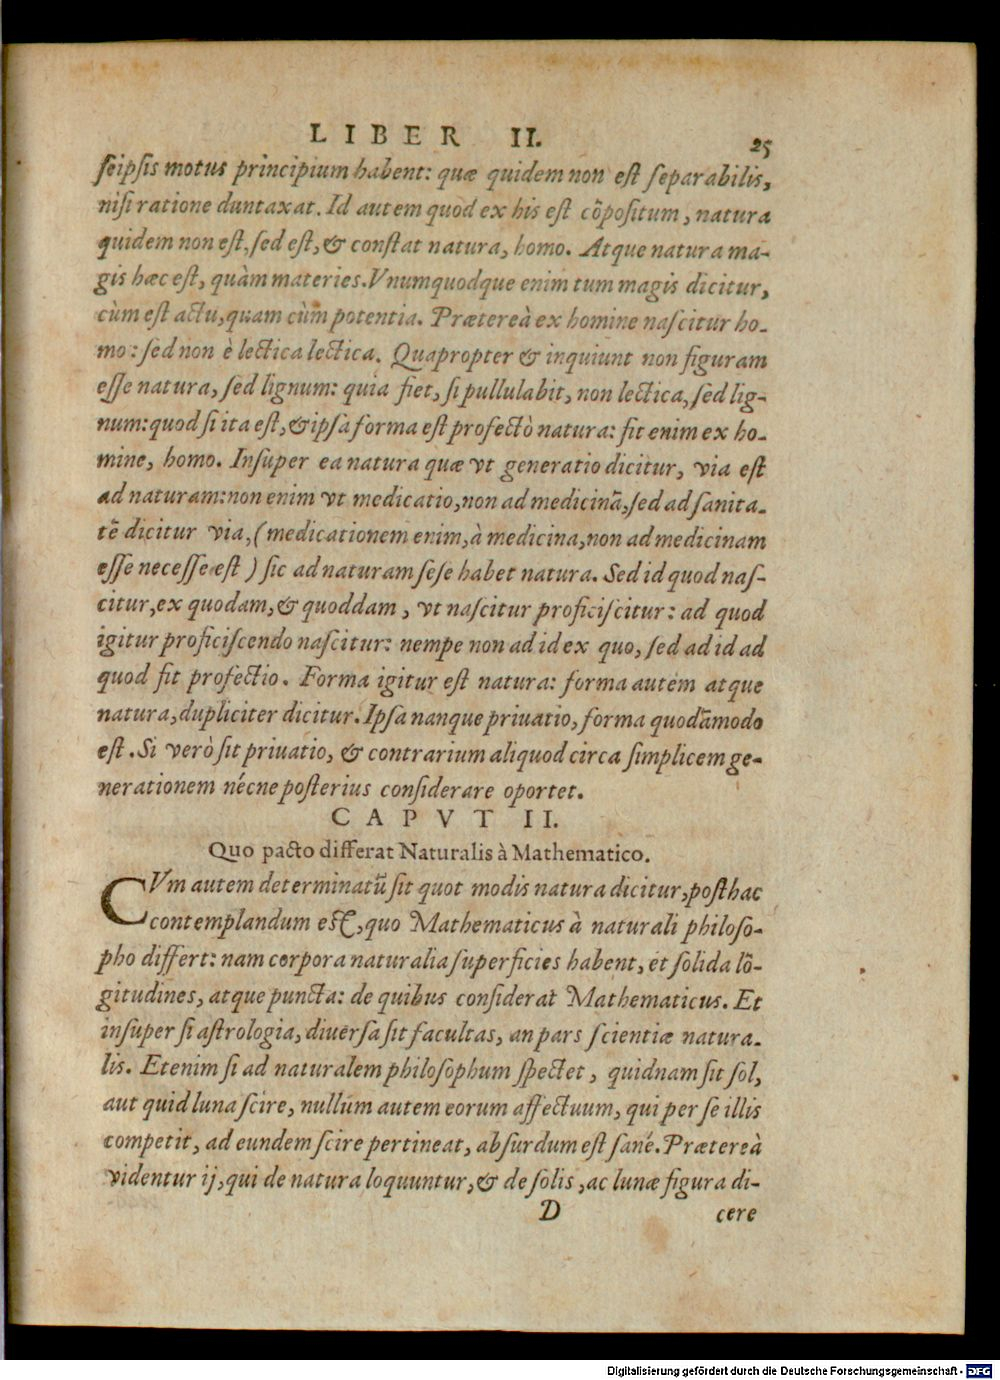 LIBER II. 25
ſeipſis motus principium habent: quæ quidem non eſt ſeparabilis,
niſi ratione duntaxat. Id autem quod ex his eſt cōpoſitum, natura
quidem non eſt, ſed eſt, & conſtat natura, homo. Atque natura ma-
gis hæc eſt, quàm materies. Vnumquodque enim tum magis dicitur,
cùm eſt actu, quam cùm potentia. Prætereà ex homine naſcitur ho-
mo: ſed non è lectica lectica. Quapropter & inquiunt non figuram
eſſe natura, ſed lignum: quia fiet, ſi pullulabit, non lectica, ſed lig-
num: quod ſi ita eſt, & ipſa forma eſt profectò natura: fit enim ex ho-
mine, homo. Inſuper ea natura quæ vt generatio dicitur, via eſt
ad naturam: non enim vt medicatio, non ad medicinā, ſed ad ſanita-
tē dicitur via, (medicationem enim, à medicina, non ad medicinam
eſſe neceſſe eſt) ſic ad naturam ſeſe habet natura. Sed id quod naſ-
citur, ex quodam, & quoddam, vt naſcitur proficiſcitur: ad quod
igitur proficiſcendo naſcitur: nempe non ad id ex quo, ſed ad id ad
quod fit profectio. Forma igitur eſt natura: forma autem atque
natura, dupliciter dicitur. Ipſa nanque priuatio, forma quodāmodo
eſt. Si verò ſit priuatio, & contrarium aliquod circa ſimplicem ge-
nerationem nécne poſterius conſiderare oportet.
CAPVT II.
Quo pacto differat Naturalis à Mathematico.
CVm autem determinatū ſit quot modis natura dicitur, poſthac
contemplandum eſt, quo Mathematicus à naturali philoſo-
pho differt: nam corpora naturalia ſuperficies habent, et ſolida lō-
gitudines, atque puncta: de quibus conſiderat Mathematicus. Et
inſuper ſi aſtrologia, diuerſa ſit facultas, an pars ſcientiæ natura-
lis. Etenim ſi ad naturalem philoſophum ſpectet, quidnam ſit ſol,
aut quid luna ſcire, nullum autem eorum affectuum, qui per ſe illis
competit, ad eundem ſcire pertineat, abſurdum eſt ſané. Prætereà
videntur ij, qui de natura loquuntur, & de ſolis, ac lunæ figura di-
D cere
Digitalisierung gefördert durch die Deutsche Forschungsgemeinschaft - DFG